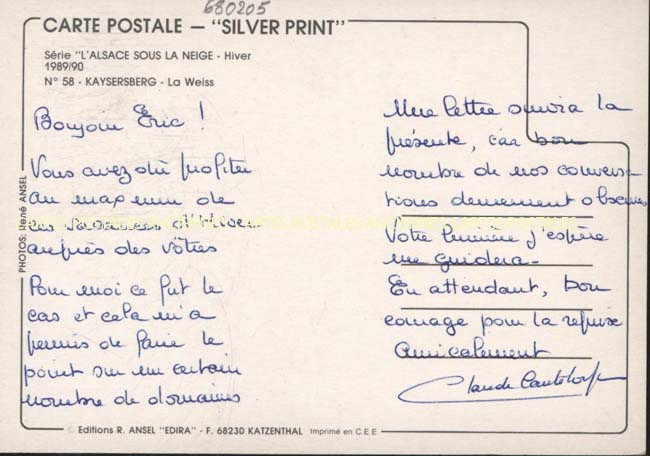 680205
CARTE POSTALE – "SILVER PRINT"
Série "L'ALSACE SOUS LA NEIGE - Hiver
1989/90
N° 58 - KAYSERSBERG - La Weiss
Bonjour Éric !
Vous avez dû profiter
au maximum de
ces vacances d'Hiver
auprès des vôtres
Pour moi ce fut le
cas et cela m'a
permis de faire le
point sur un certain
nombre de domaines
Une lettre suivra la
présente, car bon
nombre de nos conversa
tions demeurent obscures
Votre lumière j'espère
me guidera.
En attendant, bon
courage pour la reprise
Amicalement
Claude
PHOTOS: René ANSEL
© Editions R. ANSEL "EDIRA" - F. 68230 KATZENTHAL Imprimé en C.E.E.